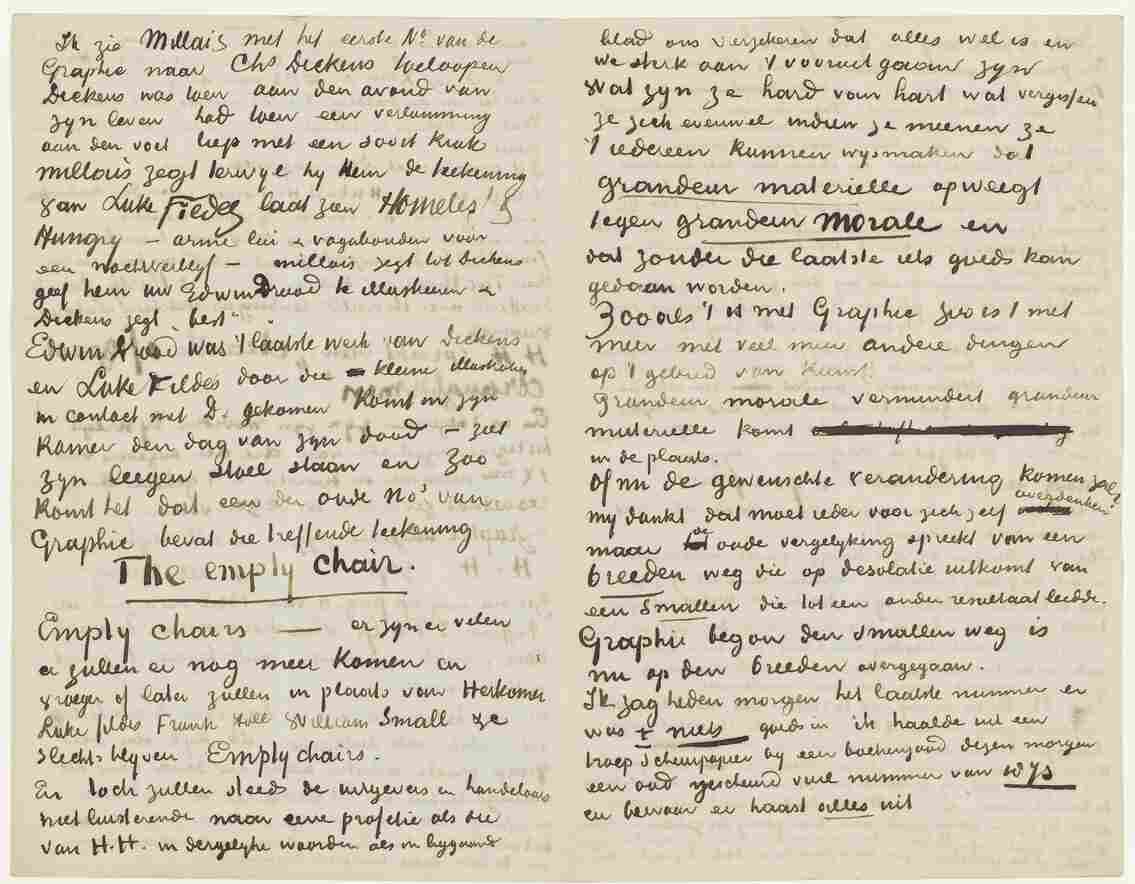 Ik zie Millais met het eerste No van de
Graphic naar Chs Dickens toeloopen
Dickens was toen aan den avond van
zyn leven had toen een verlamming
aan den voet liep met een soort kruk
Millais zegt terwyl hy Hem de teekening
van Luke Fildes laat zien "Homeles" &
Hungry – arme lui & vagabonden voor
een nachtverblyf – Millais zegt tot Dickens
geef hem uw Edwin Drood te illustreeren &
Dickens zegt „best".
Edwin Drood was 't laatste werk van Dickens
en Luke Fildes door die kleine illustraties
in contact met D. gekomen komt in zyn
kamer den dag van zyn dood – ziet
zyn leegen stoel staan en zoo
komt het dat een der oude Nos van
Graphic bevat die treffende teekening
The empty chair.
Empty chairs — er zyn er velen
er zullen er nog meer komen en
vroeger of later zullen in plaats van Herkomer
Luke fildes Frank Holl William Small ze
slechts blyven Empty chairs.
En toch zullen steeds de uitgevers en handelaars
niet luisterende naar eene profetie als die
van H.H. in dergelyke woorden als in bygaand
blad ons verzekeren dat alles wel is en
we sterk aan 't vooruit gaan zyn
Wat zyn ze hard van hart wat vergissen
ze zich evenwel indien ze meenen ze
't iedereen kunnen wysmaken dat
grandeur materielle opweegt
tegen grandeur morale en
dat zonder die laatste iets goeds kan
gedaan worden.
Zooals 't is met Graphic zoo is 't met
meer met veel meer andere dingen
op 't gebied van kunst.
Grandeur morale vermindert grandeur
materielle komt
in de plaats.
Of nu de gewenschte verandering komen zal?
my dunkt dat moet ieder voor zich zelf overdenken
maar de oude vergelyking spreekt van een
breeden weg die op desolatie uitkomt van
een smallen die tot een ander resultaat leidde.
Graphic begon den smallen weg is
nu op den breeden overgegaan.
Ik zag heden morgen het laatste nummer er
was + niets goeds in ik haalde uit een
troep scheurpapier by een boekenjood dezen morgen
een oud gescheurd vuil nummer van
en bewaar er haast alles uit